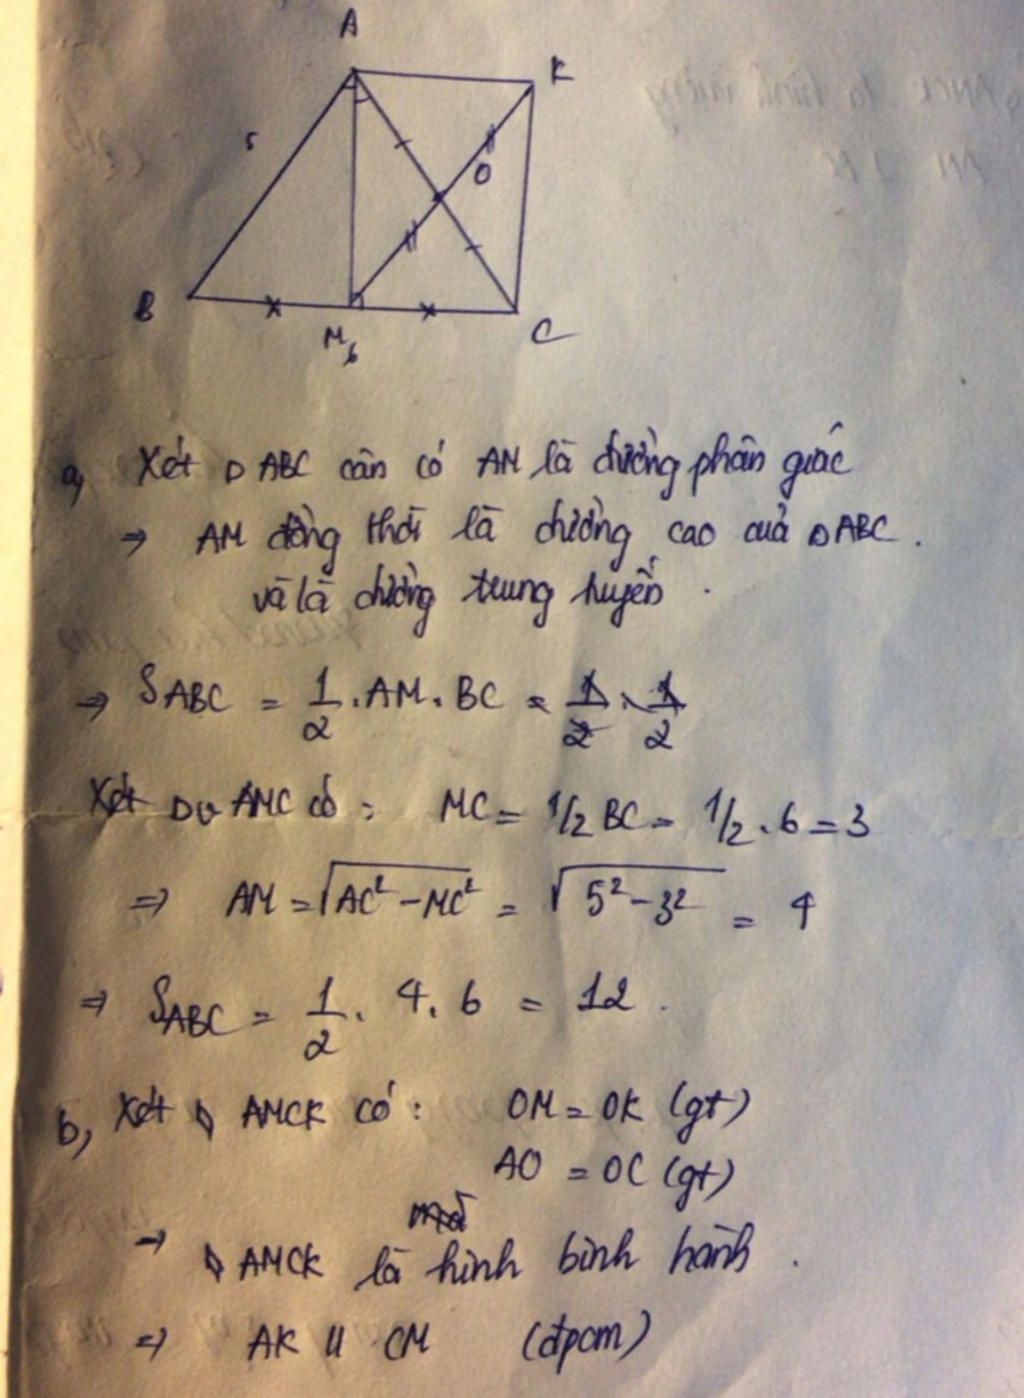 A
K
5
O
B
M
6
C
a, Xét Δ ABC cân có AM là đường phân giác
⇒ AM đồng thời là đường cao của Δ ABC.
và là đường trung tuyến.
⇒ S ABC = 1/2 . AM . BC =
Xét Δv AMC có: MC = 1/2 BC = 1/2 . 6 = 3
⇒ AM = √(AC² - MC²) = √(5² - 3²) = 4
⇒ S ABC = 1/2 . 4 . 6 = 12.
b, Xét ◊ AMCK có: OM = OK (gt)
AO = OC (gt)
→ ◊ AMCK là hình bình hành.
⇒ AK // CM (đpcm)